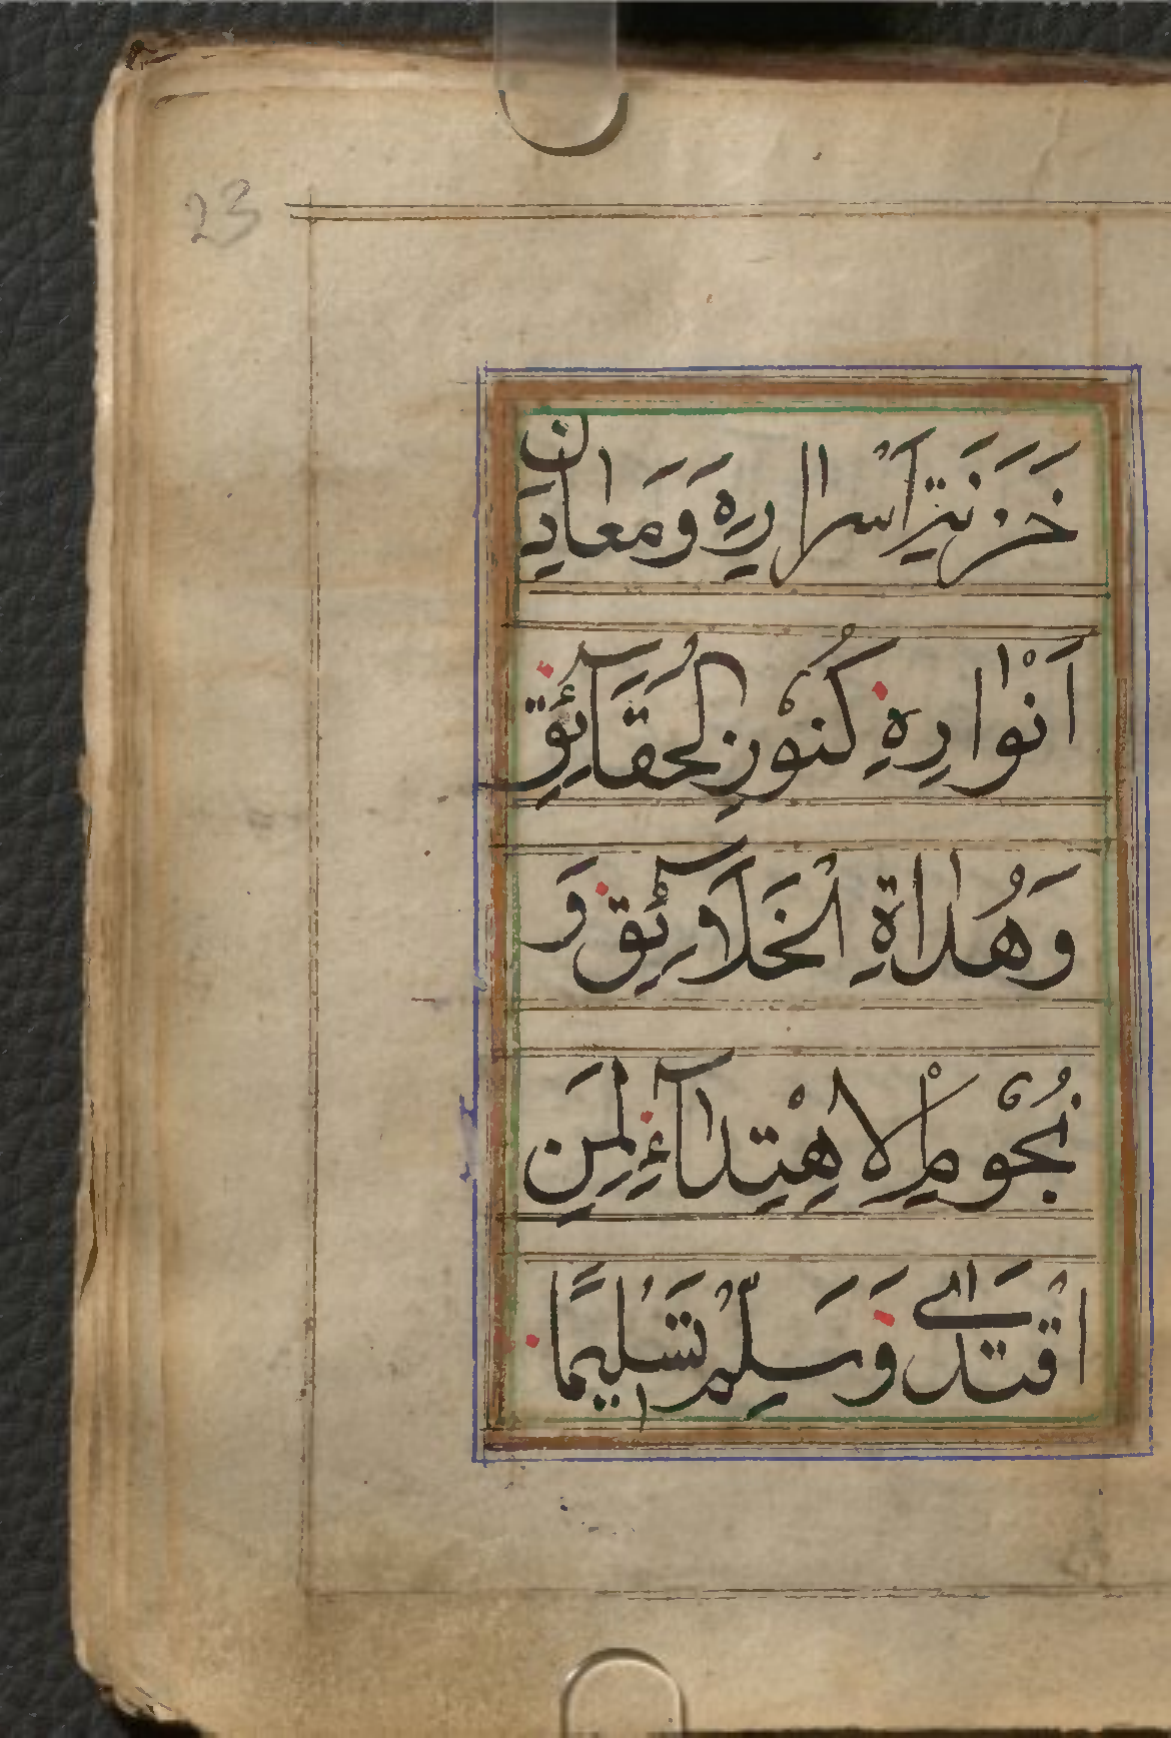 23
خَزَنَةِ اَسْرَارِهِ وَمَعَادِنِ
اَنْوَارِهِ كُنُوْزِ الْحَقَآئِقِ
وَهُدَاةِ الْخَلَآئِقِ وَ
نُجُوْمِ الْاِهْتِدَآءِ لِمَنِ
اقْتَدٰى وَسَلَّمْ تَسْلِيْمًا